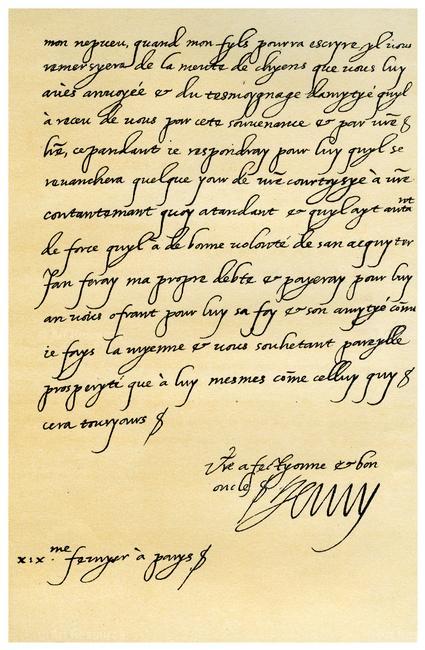 mon nepueu, quand mon fyls pourra escryre yl uous
remersyera de la meute de chyens que uous luy
auies anuoyée & du tesmoygnage damytyé quyl
à receu de uous par cete souuenance & par ure
lre, cepandant ie respondray pour luy quyl se
reuanchera quelque your de ure courtoysye à ure
contantemant quoy atandant & quyl ayt autant
de force quyl à de bonne uolonté de san aquyter
Jan feray ma propre debte & payeray pour luy
an uous ofrant pour luy sa foy & son amytyé cõme
ie fays la myenne & uous souhetant pareylle
prosperyté que à luy mesmes cõme celluy quy
cera touryours
Vre afectyonne & bon
oncle Henry
xix.me feuryer à parys